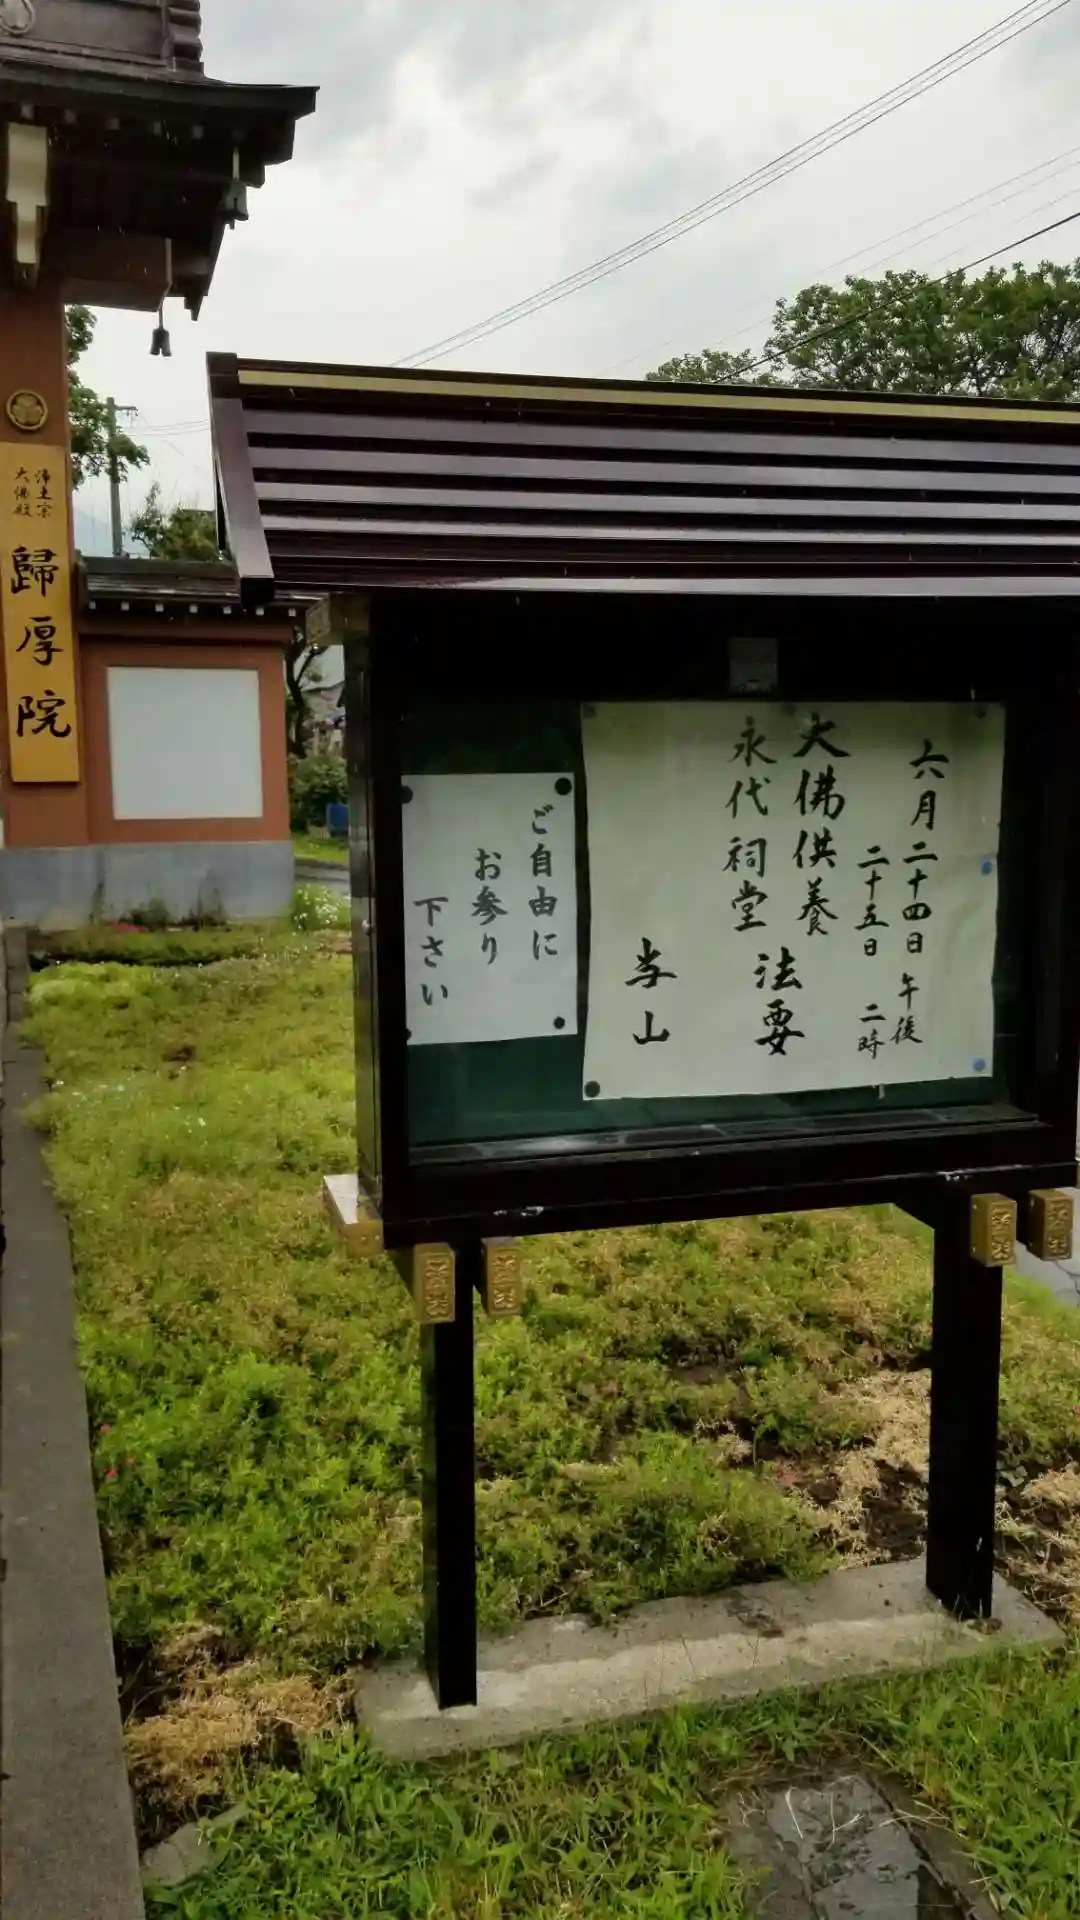 浄土宗
大佛殿
歸厚院
六月二十四日 午後
二十五日 二時
大佛供養
永代祠堂
法要
当山
ご自由に
お参り
下さい